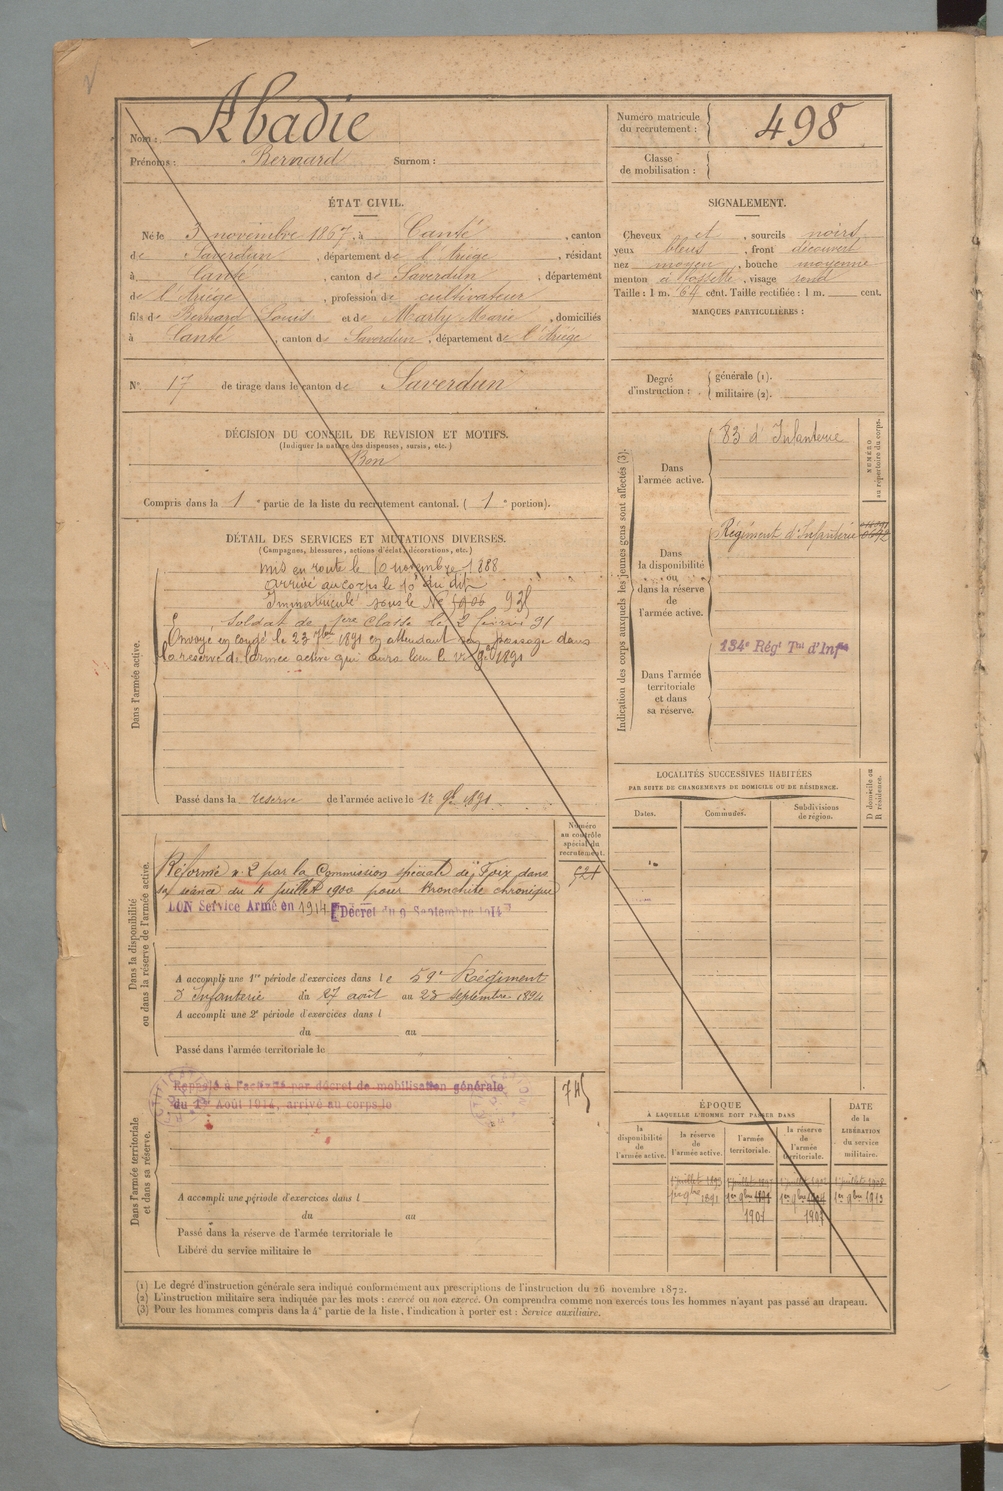 Nom : Abadie
Prénoms : Bernard Surnom :
Numéro matricule
du recrutement : 498
Classe
de mobilisation :
ÉTAT CIVIL.
Né le 3 novembre 1867, à Canté, canton
de Saverdun, département de l'Ariège, résidant
à Canté, canton de Saverdun, département
de l'Ariège, profession de cultivateur
fils de Bernard Louis et de Marty Marie, domiciliés
à Canté, canton de Saverdun, département de l'Ariège
N° 17 de tirage dans le canton de Saverdun
SIGNALEMENT.
Cheveux et, sourcils noirs
yeux bleus, front découvert
nez moyen, bouche moyenne
menton à fossette, visage rond
Taille : 1 m. 64 cent. Taille rectifiée : 1 m. cent.
MARQUES PARTICULIÈRES :
Degré
d'instruction :
générale (1).
militaire (2).
DÉCISION DU CONSEIL DE REVISION ET MOTIFS.
(Indiquer la nature des dispenses, sursis, etc.)
Bon
Compris dans la 1e partie de la liste du recrutement cantonal. ( 1e portion).
DÉTAIL DES SERVICES ET MUTATIONS DIVERSES.
(Campagnes, blessures, actions d'éclat, décorations, etc.)
Dans l'armée active.
Mis en route le 10 novembre 1888
arrivé au corps le 10 du dit
Immatriculé sous le No
Soldat de 1ère Classe le 2 91
Envoyé en congé le 23 7bre 1891 en attendant son passage dans
la réserve de l'armée active qui aura lieu le 1891
Passé dans la réserve de l'armée active le 1er 9bre 1891
Indication des corps auxquels les jeunes gens sont affectés (3).
NUMÉRO
au répertoire du corps.
Dans
l'armée active.
83 d'Infanterie
Dans
la disponibilité
ou
dans la réserve
de
l'armée active.
Régiment d'Infanterie
Dans l'armée
territoriale
et dans
sa réserve.
134e Régt Tal d'Infie
LOCALITÉS SUCCESSIVES HABITÉES
PAR SUITE DE CHANGEMENTS DE DOMICILE OU DE RÉSIDENCE.
Dates.
Communes.
Subdivisions
de région.
D domicile ou
R résidence.
Dans la disponibilité
ou dans la réserve de l'armée active.
Numéro
au contrôle
spécial du
recrutement.
Réformé n° 2 par la Commission spéciale de Foix dans
sa séance du 4 juillet 1900 pour bronchite chronique
BON Service Armé en 1914 [Décret du 9 Septembre 1914]
A accompli une 1re période d'exercices dans le 59e Régiment
d'Infanterie du 27 août au 23 septembre 1894
A accompli une 2e période d'exercices dans l
du au
Passé dans l'armée territoriale le
Dans l'armée territoriale
et dans sa réserve.
Rappelé à l'activité par décret de mobilisation générale
du 1er Août 1914, arrivé au corps le
A accompli une période d'exercices dans l
du au
Passé dans la réserve de l'armée territoriale le
Libéré du service militaire le
ÉPOQUE
À LAQUELLE L'HOMME DOIT PASSER DANS
la
disponibilité
de
l'armée active.
la réserve
de
l'armée active.
l'armée
territoriale.
la réserve
de
l'armée
territoriale.
DATE
de la
LIBÉRATION
du service
militaire.
1er 9bre 1891
1er 9bre 1913
1901
(1) Le degré d'instruction générale sera indiqué conformément aux prescriptions de l'instruction du 26 novembre 1872.
(2) L'instruction militaire sera indiquée par les mots : exercé ou non exercé. On comprendra comme non exercés tous les hommes n'ayant pas passé au drapeau.
(3) Pour les hommes compris dans la 4e partie de la liste, l'indication à porter est : Service auxiliaire.